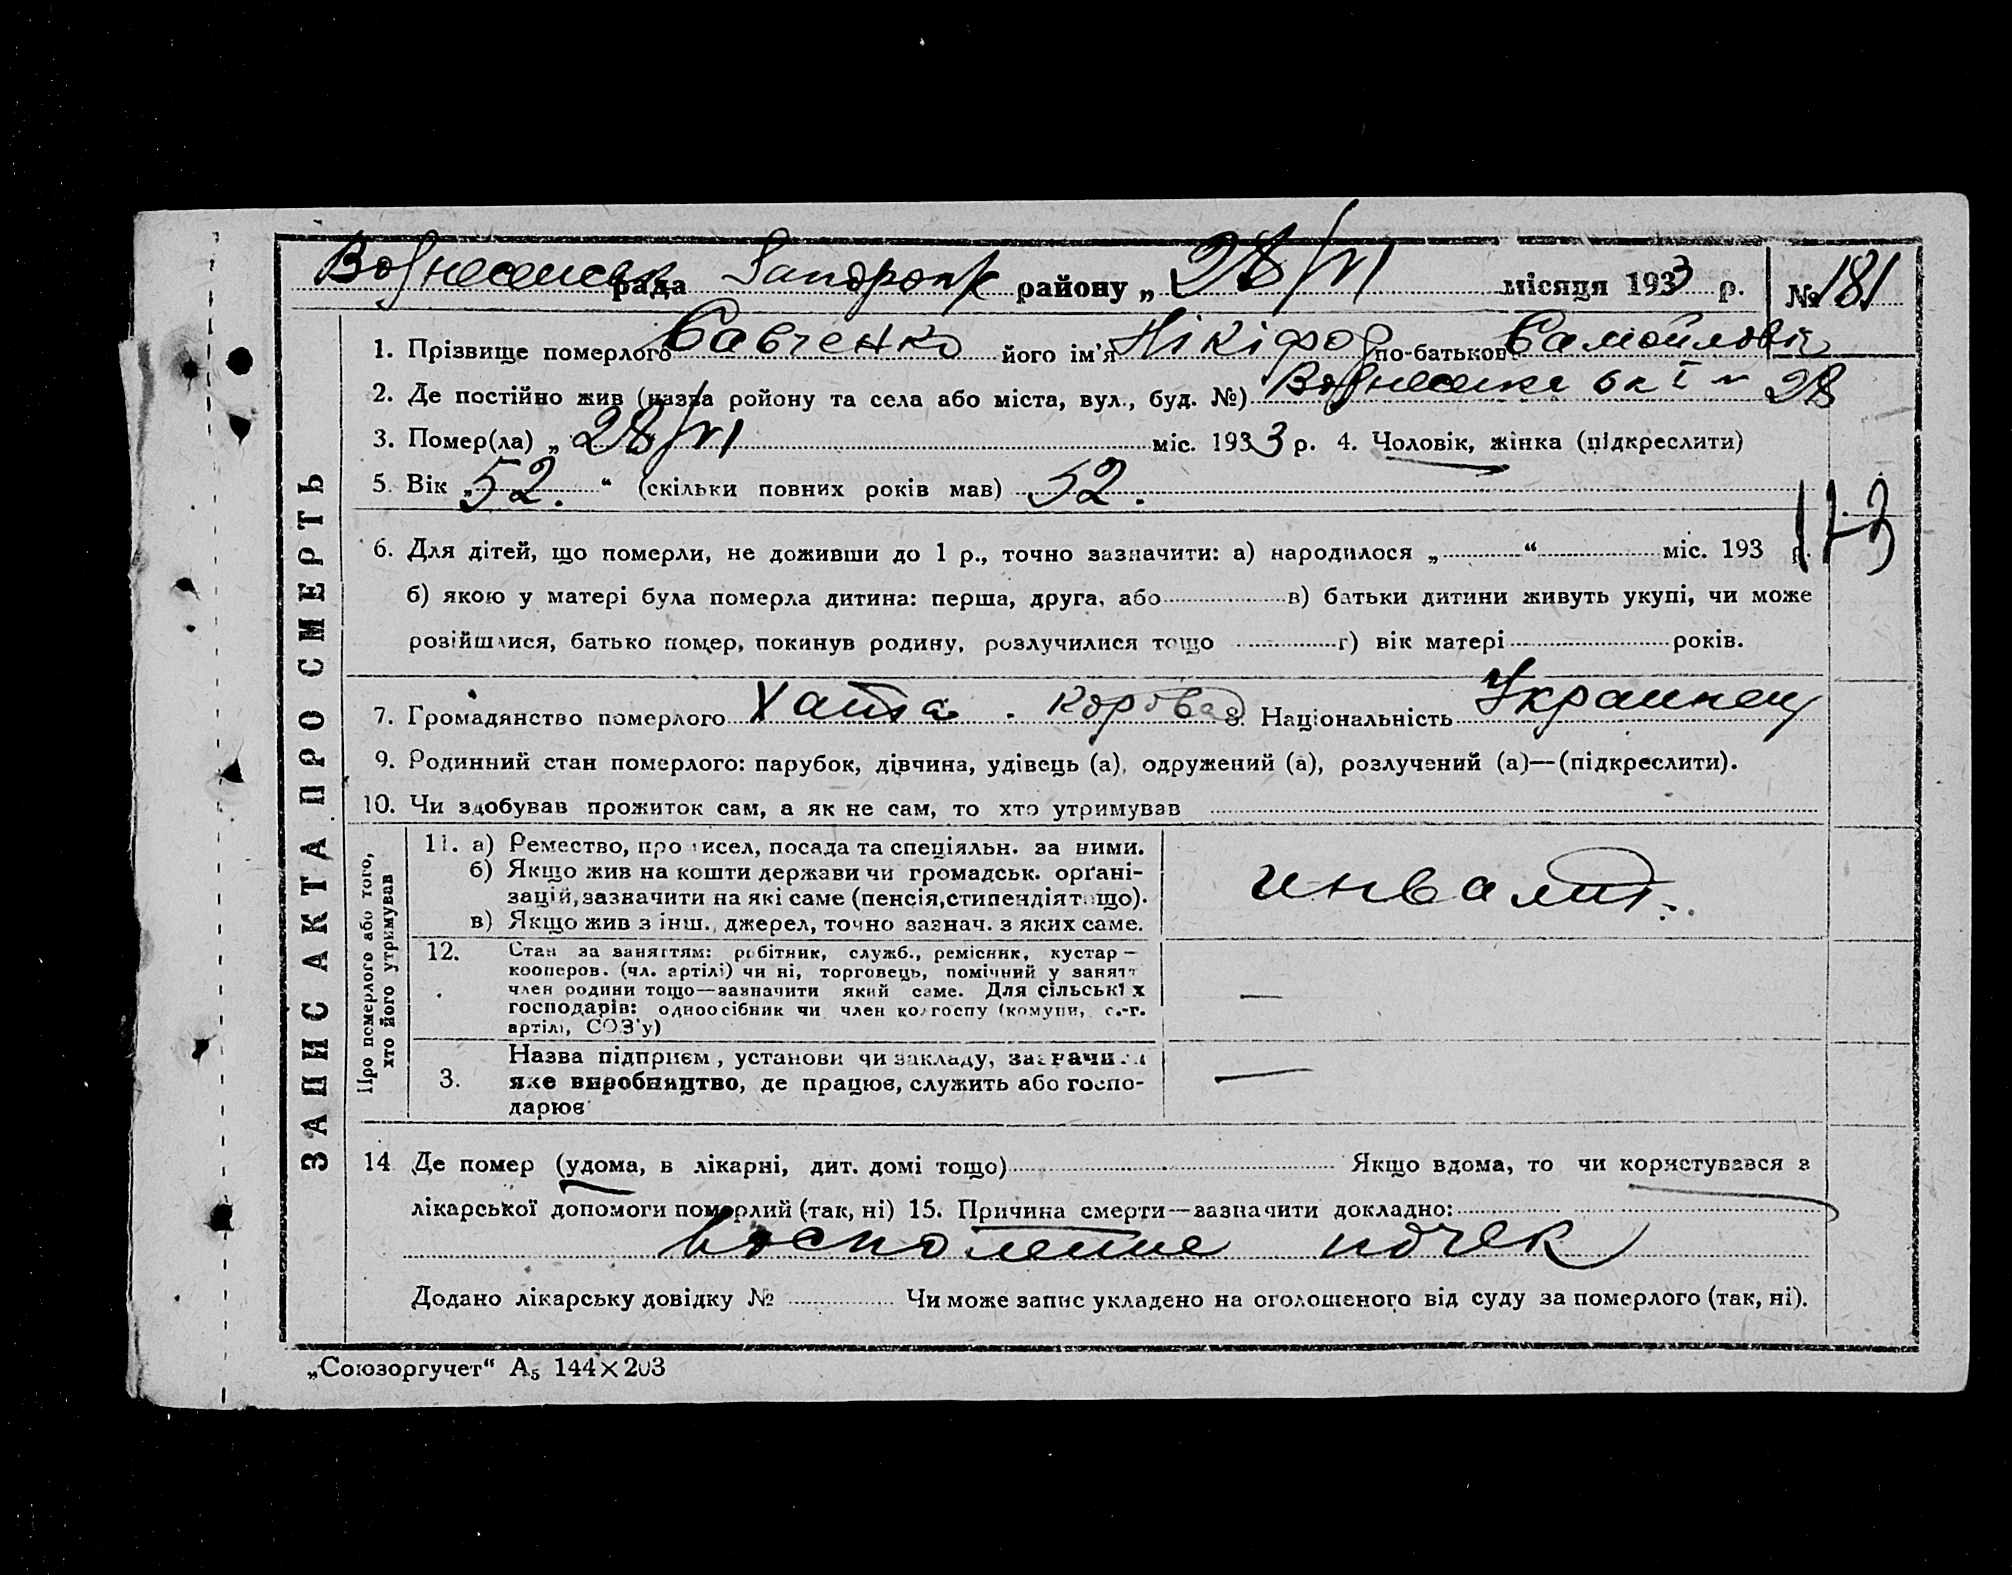 Вознесенськ рада Запорож району „ 28/VI місяця 1933 р. № 181
1. Прізвище померлого Савченко його ім'я Нікіфор по-батькові Самойлович
2. Де постійно жив (назва ройону та села або міста, вул., буд. №) Вознесенка 6к I 28
3. Помер(ла) „ 28/VI міс. 1933 р. 4. Чоловік, жінка (підкреслити)
5. Вік „ 52. “ (скільки повних років мав) 52.
113
6. Для дітей, що померли, не доживши до 1 р., точно зазначити: а) народилося „ “ міс. 193 р.
б) якою у матері була померла дитина: перша, друга, або в) батьки дитини живуть укупі, чи може
розійшлися, батько помер, покинув родину, розлучилися тощо г) вік матері років.
7. Громадянство померлого Хата. корова 8. Національність Украинец
9. Родинний стан померлого: парубок, дівчина, удівець (а), одружений (а), розлучений (а)—(підкреслити).
10. Чи здобував прожиток сам, а як не сам, то хто утримував
ЗАПИС АКТА ПРО СМЕРТЬ
Про померлого або того,
хто його утримував
11. а) Ремество, про исел, посада та спеціяльн. за ними.
б) Якщо жив на кошти держави чи громадськ. орґані-
зацій, зазначити на які саме (пенсія, стипендія тощо).
в) Якщо жив з інш., джерел, точно зазнач. з яких саме.
инвалид.
12. Стан за заняттям: робітник, служб., ремісник, кустар —
кооперов. (чл. артілі) чи ні, торговець, помічний у занятт
член родини тощо—зазначити який саме. Для сільськіх
господарів: одноосібник чи член колгоспу (комуни, с.-г.
артілі, СОЗ'у)
—
3. Назва підприєм, установи чи закладу, зазначити
яке виробництво, де працює, служить або госпо-
дарює
—
14 Де помер (удома, в лікарні, дит. домі тощо) Якщо вдома, то чи користувався з
лікарської допомоги померлий (так, ні) 15. Причина смерти—зазначити докладно:
воспаление почек
Додано лікарську довідку № Чи може запис укладено на оголошеного від суду за померлого (так, ні).
„Союзоргучет“ А5 144×203